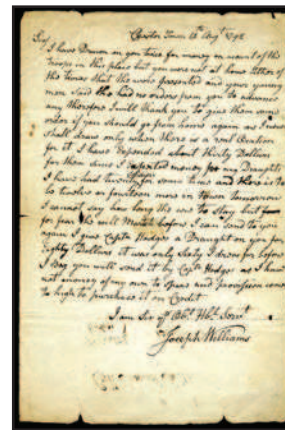 Sir/ Charles Town 15th Augt 1798
I have Drawn on you twice for money on account of the
troops in this place but you were not at home Either of
the times that the were presented and your young
man said the had no orders from you to advance
any therefore I will thank you to give them some
order if you should go from home again as I never
shall draw only when there is a real Occation
for it I have Expended about thirty Dollars
for them sinc I expected money for my Draughts
I have had twenty on some times and there is to
be twelve or fourteen more in town tomorrow
I cannot say how long the are to stay but
for fear the will March before I can send to you
again I give Captn Hedges a Draught on you for
Eighty Dollars it was only Sixty I drew for before
I Beg you will send it by Captn Hedges as I have
not money of my own to spare and provision comes
to high to purchase it on Credit
I am Sir Obt Hbl Servt
Joseph Williams